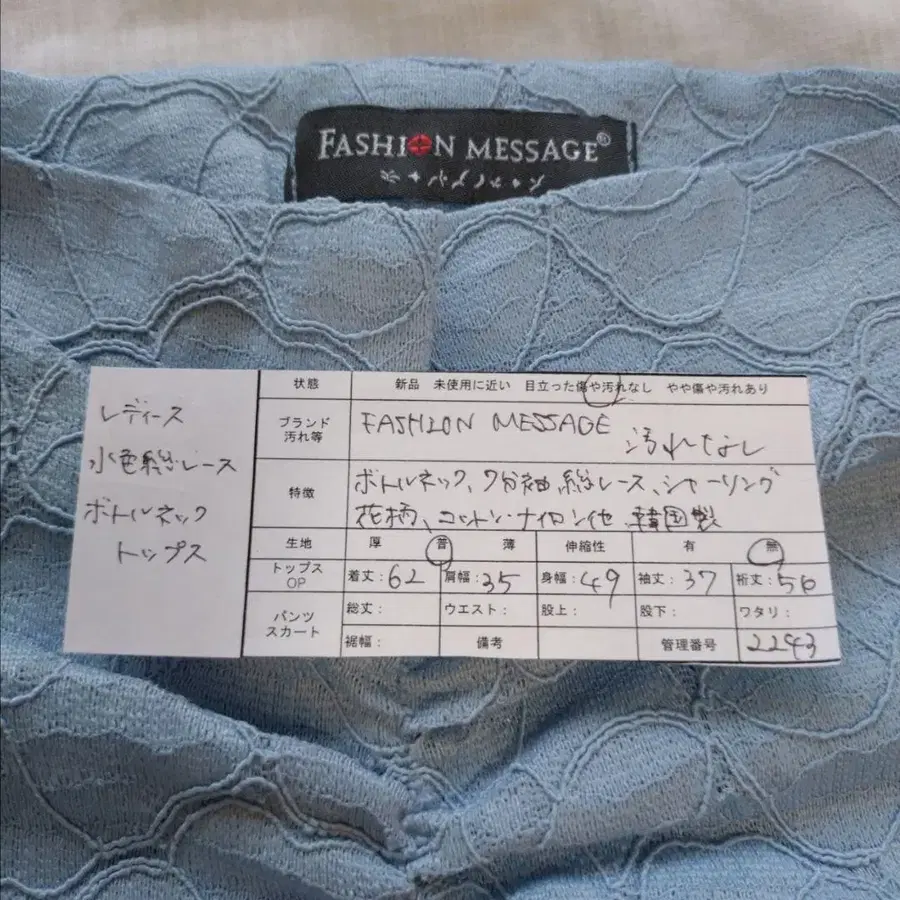 FASHION MESSAGE®
レディース
水色総レース
ボトルネック
トップス
状態 新品 未使用に近い 目立った傷や汚れなし やや傷や汚れあり
ブランド
汚れ等
FASHION MESSAGE 汚れなし
特徴
ボトルネック、7分袖、総レース、シャーリング
花柄、コットン・ナイロン他 韓国製
生地 厚 普 薄 伸縮性 有 無
トップス
OP
着丈:62 肩幅:35 身幅:49 袖丈:37 裄丈:56
パンツ
スカート
総丈: ウエスト: 股上: 股下: ワタリ:
裾幅: 備考 管理番号 2243